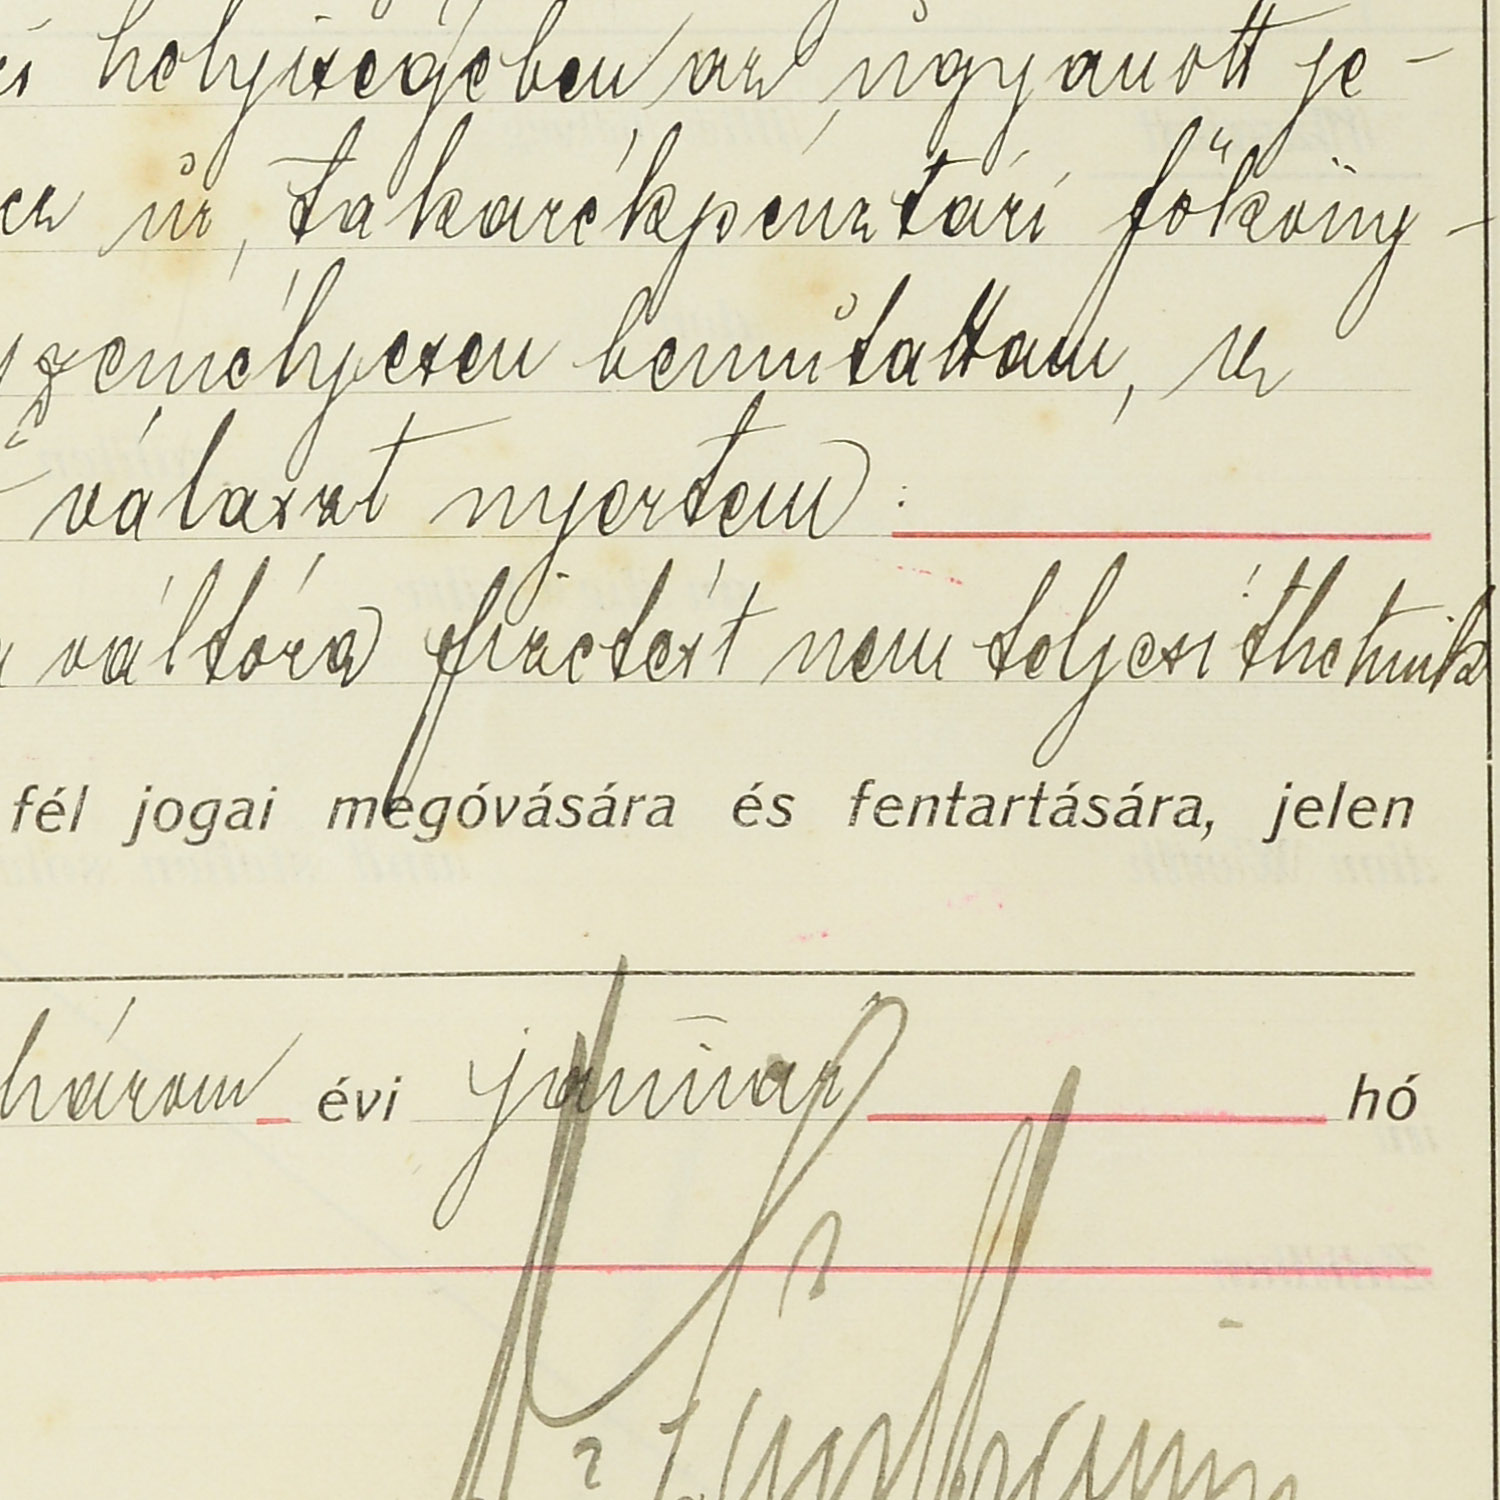 helyiségében az ugyanott je-
úr, takarékpénztári főköny-
személyesen bemutattam, s
választ nyertem :
váltóra fizetést nem teljesithetünk
fél jogai megóvására és fentartására, jelen
három évi január hó